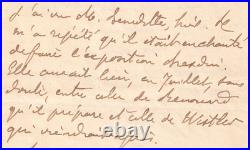 J'ai vu M. Benedite, hier. Il
m'a répété qu'il était enchanté
de faire l'exposition
Elle aurait lieu, en Juillet, sans
doute, entre celle de Renouard
qu'il prépare et celle de Whistler
qui viendra après.